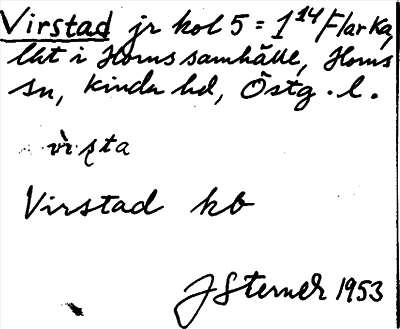 Virstad jr kol 5 = 1¹⁴ Flarka,
lät i Horns samhälle, Horns
sn, Kinda hd, Östg. l.
vìṣta
Virstad kb
J Sterner 1953